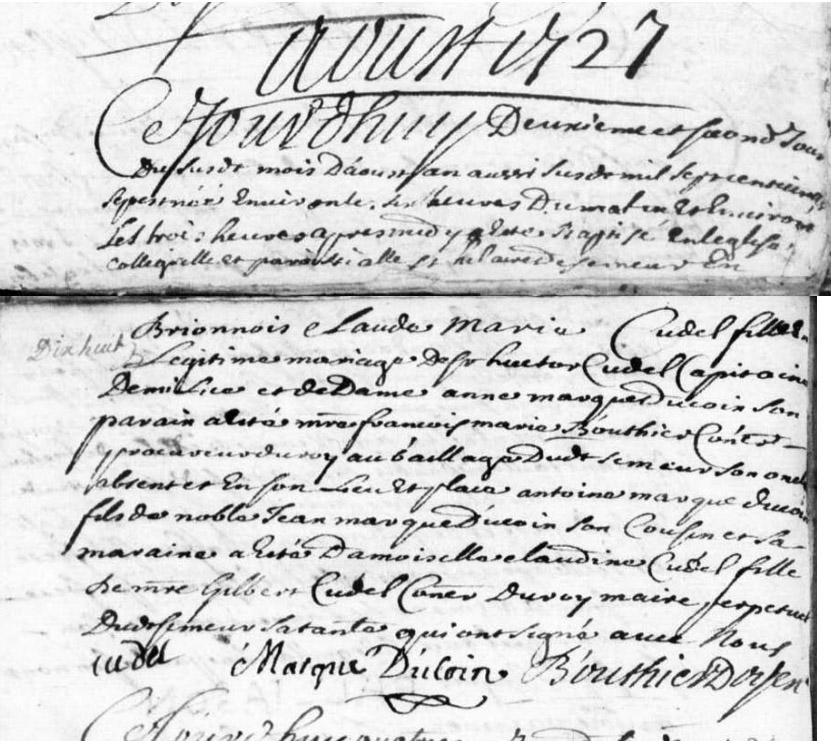 aoust 1727
Ajourdhuy Deuxieme et second Jour
Dususdt mois Daoust an aussi susdt mil septcentvingt
sept est née Environ les six heures Du matin Et Environ
Les trois heures appresmidy a Esté Baptisé En leglise
collegialle et paroissialle st hilaire de semeur En
Brionnois Claude Marie Cudel fille En
Dixhuit
Legitime mariage De sr hector Cudel Capitaine
De milice et de Dame anne marque Ducoin son
parain a esté mre francois marie Bouthier Coner
procureur du roy au baillage Dudt semeur son oncle
absent et En son Lieu Et place antoine marque ducoin
fils de noble Jean marque Ducoin son Cousin et sa
maraine a Esté Damoiselle claudine Cudel fille
De mre Gilbert Cudel Coner Du roy maire perpetuel
Dudt semeur sa tante qui ont signé avec Nous
cudel Marque Ducoin Bouthier Doyen